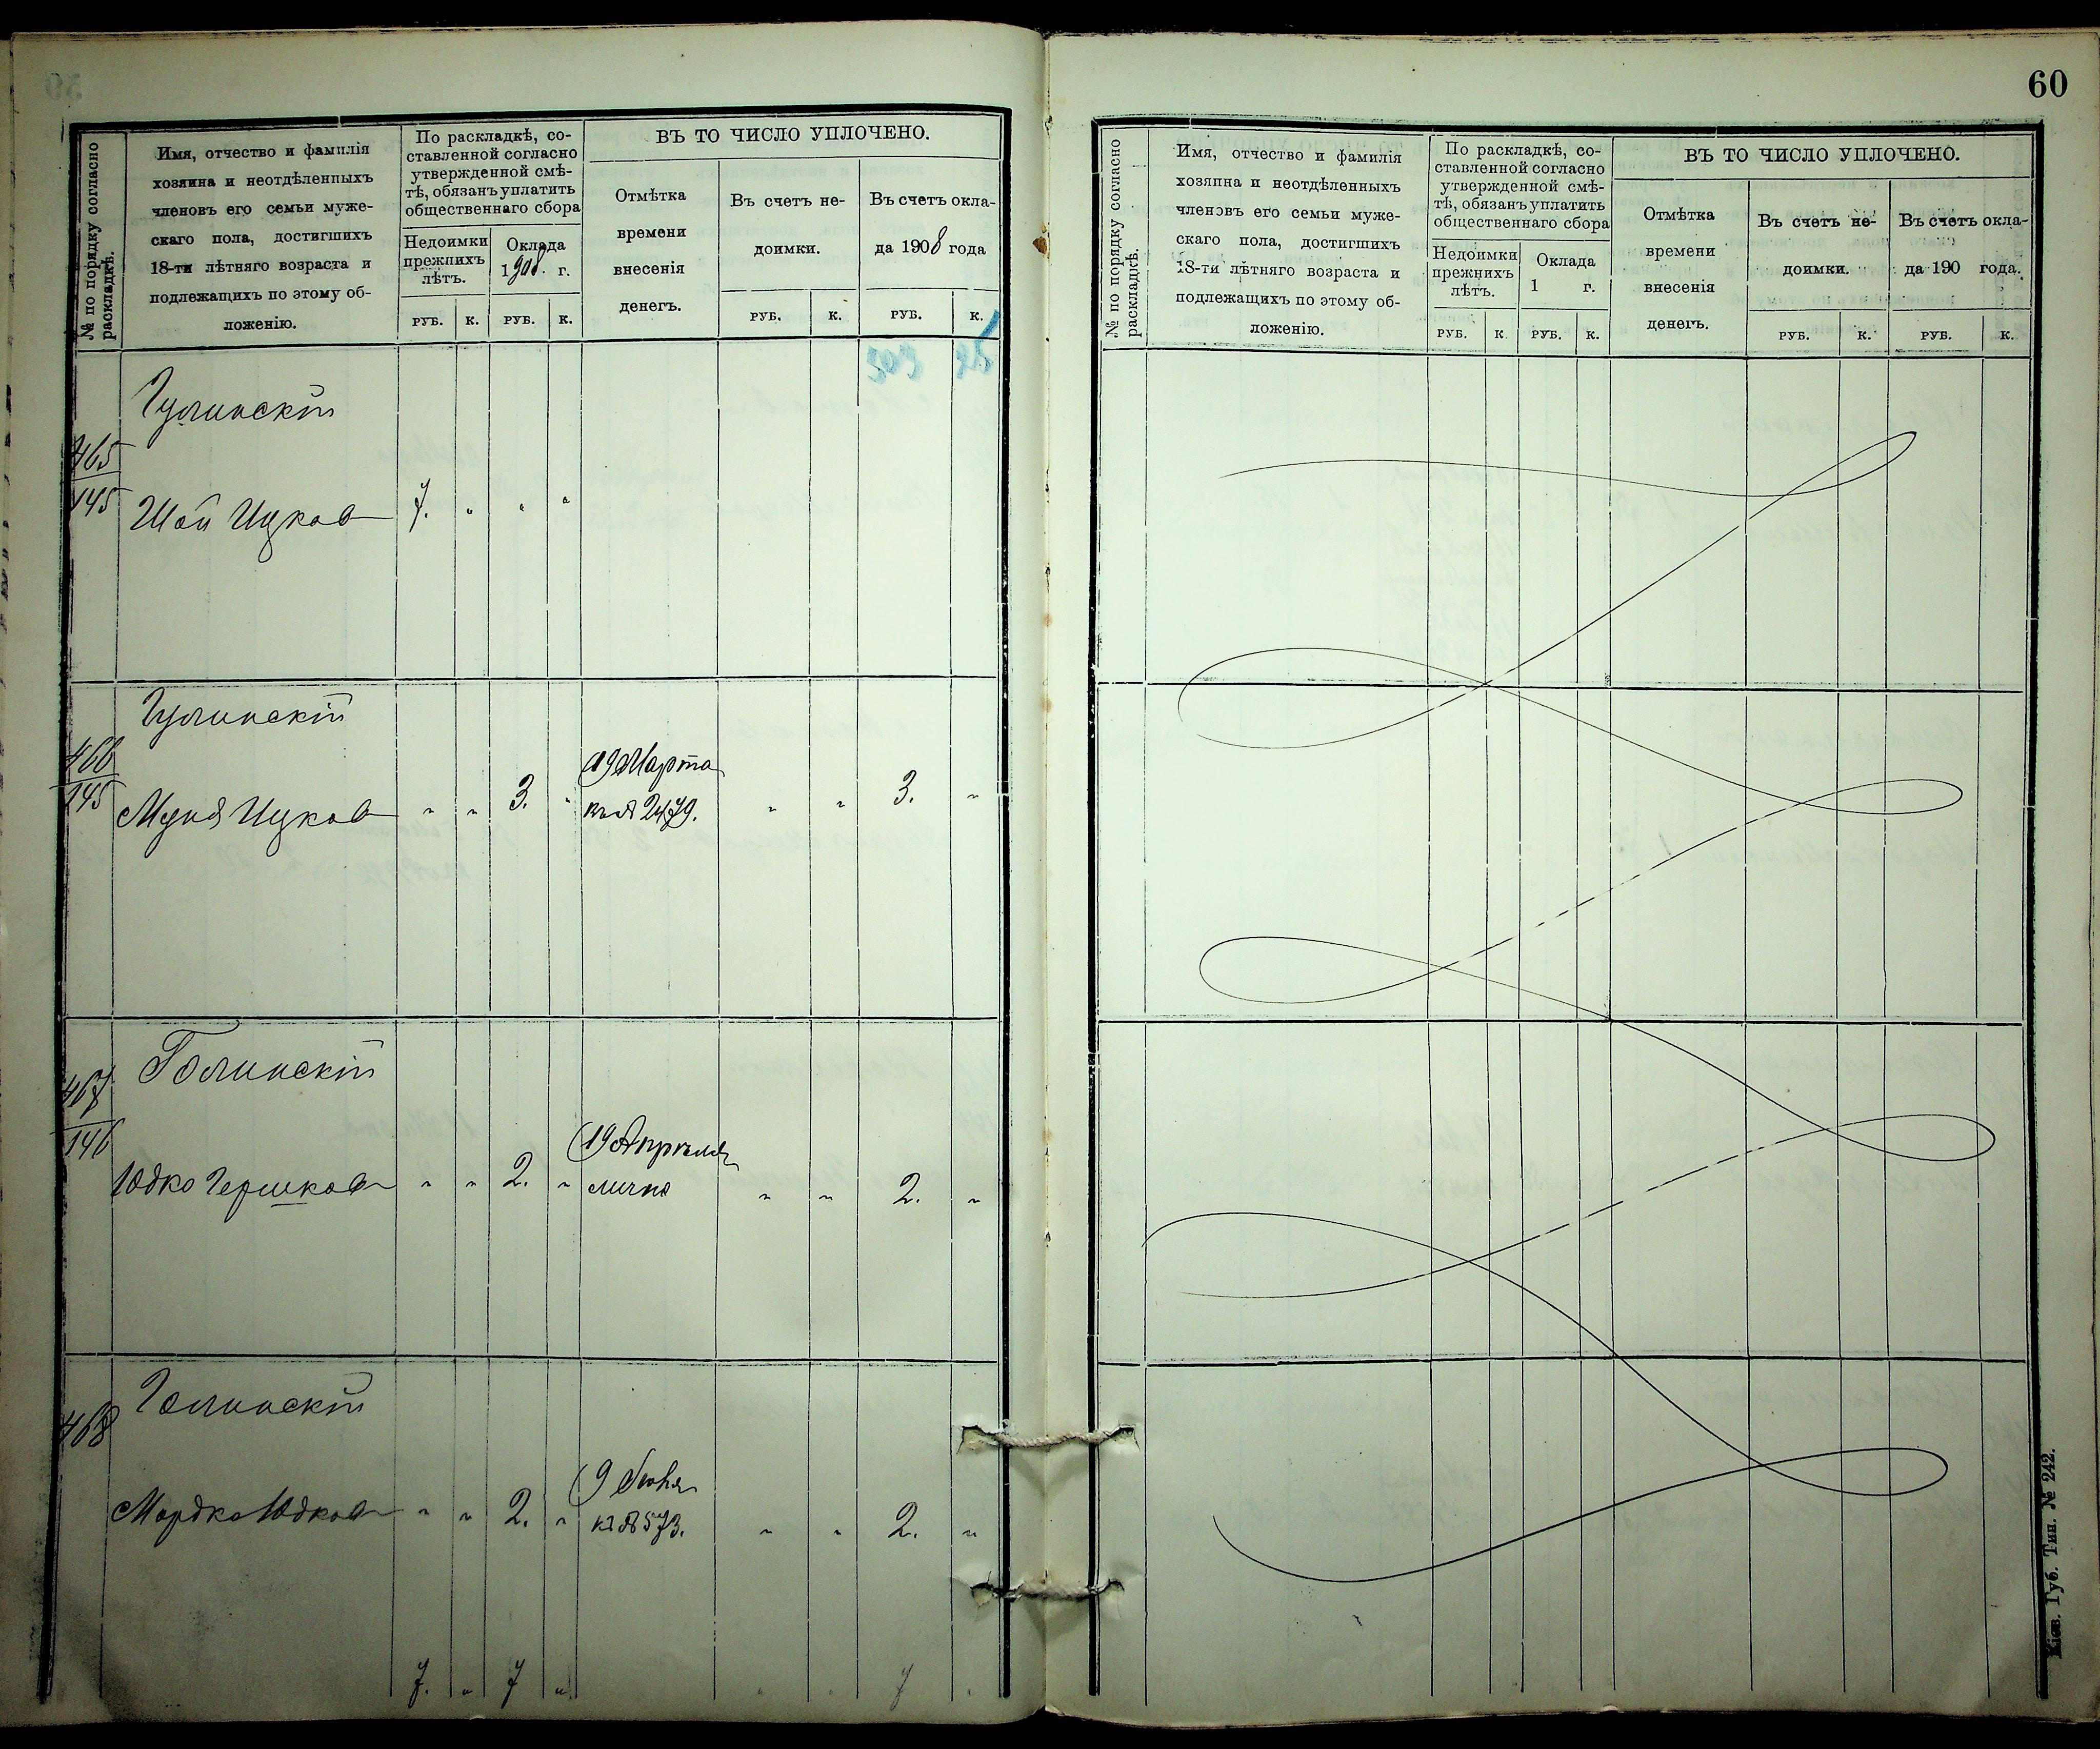 60
№ по порядку согласно
раскладкѣ.
Имя, отчество и фамилія
хозяина и неотдѣленныхъ
членовъ его семьи муже-
скаго пола, достигшихъ
18-ти лѣтняго возраста и
подлежащихъ по этому об-
ложенію.
По раскладкѣ, со-
ставленной согласно
утвержденной смѣ-
тѣ, обязанъ уплатить
общественнаго сбора
Недоимки
прежнихъ
лѣтъ.
Оклада
1908 г.
РУБ. К. РУБ. К.
ВЪ ТО ЧИСЛО УПЛОЧЕНО.
Отмѣтка
времени
внесенія
денегъ.
Въ счетъ не-
доимки.
РУБ. К.
Въ счетъ окла-
да 1908 года
РУБ. К.
303 25
Гулинскій
465
145
Шая Ицков 7. " " "
Гулинскій
466
145
19 Марта
Муня Ицков " " 3. " кв№ 2479. " " 3. "
Голинскій
467
146
19 Апрѣля
Юдко Гершков " " 2. " лично " " 2. "
Голинскій
468
9 Іюня
Мордко Юдков " " 2. " кв№ 573. " " 2. "
7. " 7 " " " 7 "
№ по порядку согласно
раскладкѣ.
Имя, отчество и фамилія
хозяина и неотдѣленныхъ
членовъ его семьи муже-
скаго пола, достигшихъ
18-ти лѣтняго возраста и
подлежащихъ по этому об-
ложенію.
По раскладкѣ, со-
ставленной согласно
утвержденной смѣ-
тѣ, обязанъ уплатить
общественнаго сбора
Недоимки
прежнихъ
лѣтъ.
Оклада
1 г.
РУБ. К. РУБ. К.
ВЪ ТО ЧИСЛО УПЛОЧЕНО.
Отмѣтка
времени
внесенія
денегъ.
Въ счетъ не-
доимки.
РУБ. К.
Въ счетъ окла-
да 190 года.
РУБ. К.
Кіев. Губ. Тип. № 242.